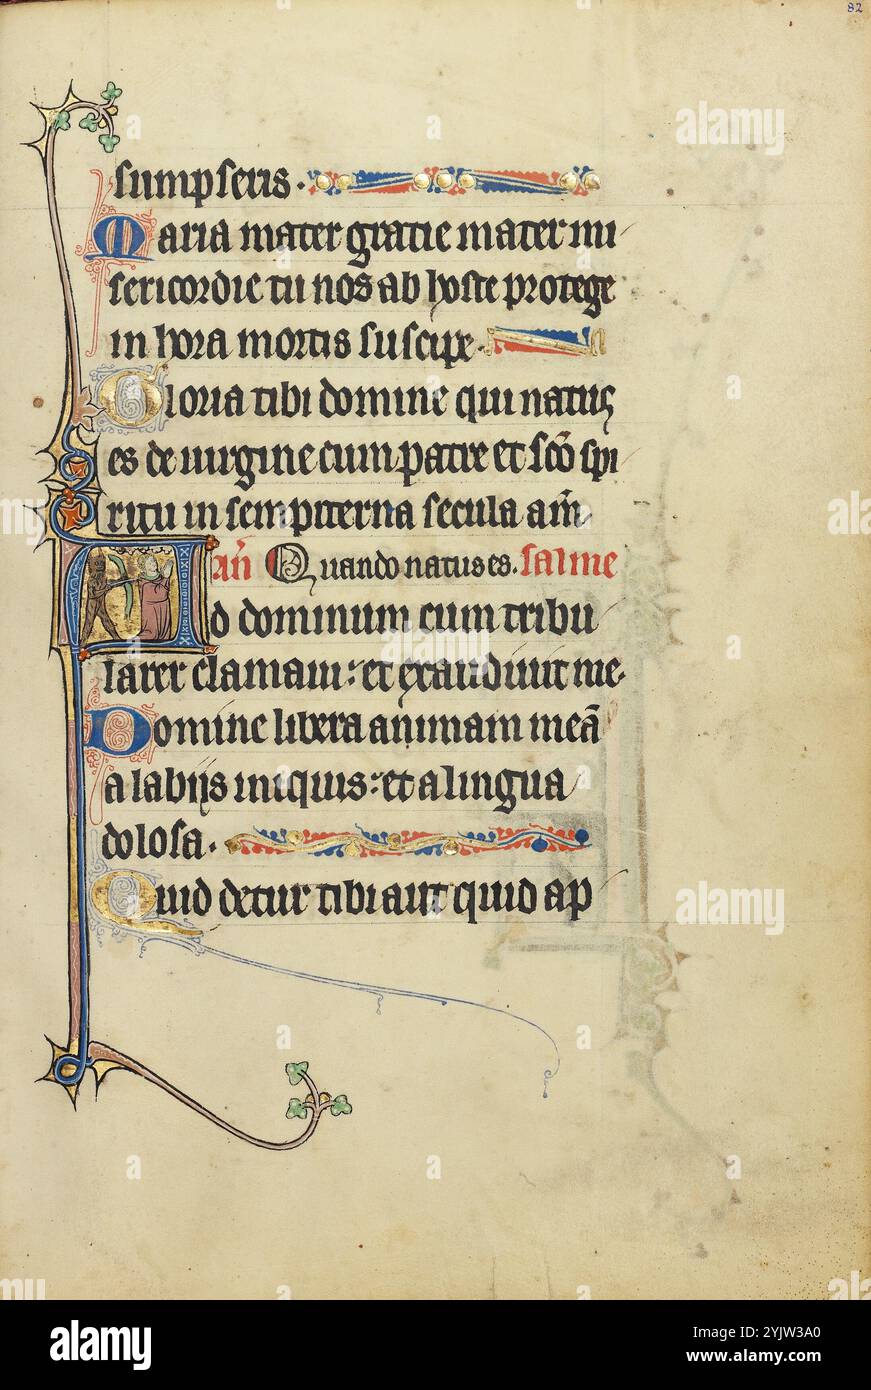 82
sumpseris.
Maria mater gratie mater mi
sericordie tu nos ab hoste protege
in hora mortis suscipe.
Gloria tibi domine qui natus
es de uirgine cum patre et sc̄o spi
ritu in sempiterna secula am̄.
an̄ Quando natus es. salme
Ad dominum cum tribu
larer clamaui: et exaudiuit me.
Domine libera animam meā
a labijs iniquis: et a lingua
dolosa.
Quid detur tibi aut quid ap
alamy
Image ID: 2YJW3A0
www.alamy.com